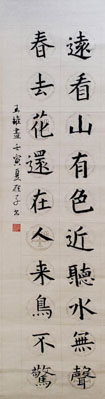 遠看山有色近聽水無聲
春去花還在人来鳥不驚
王維畫壬寅夏